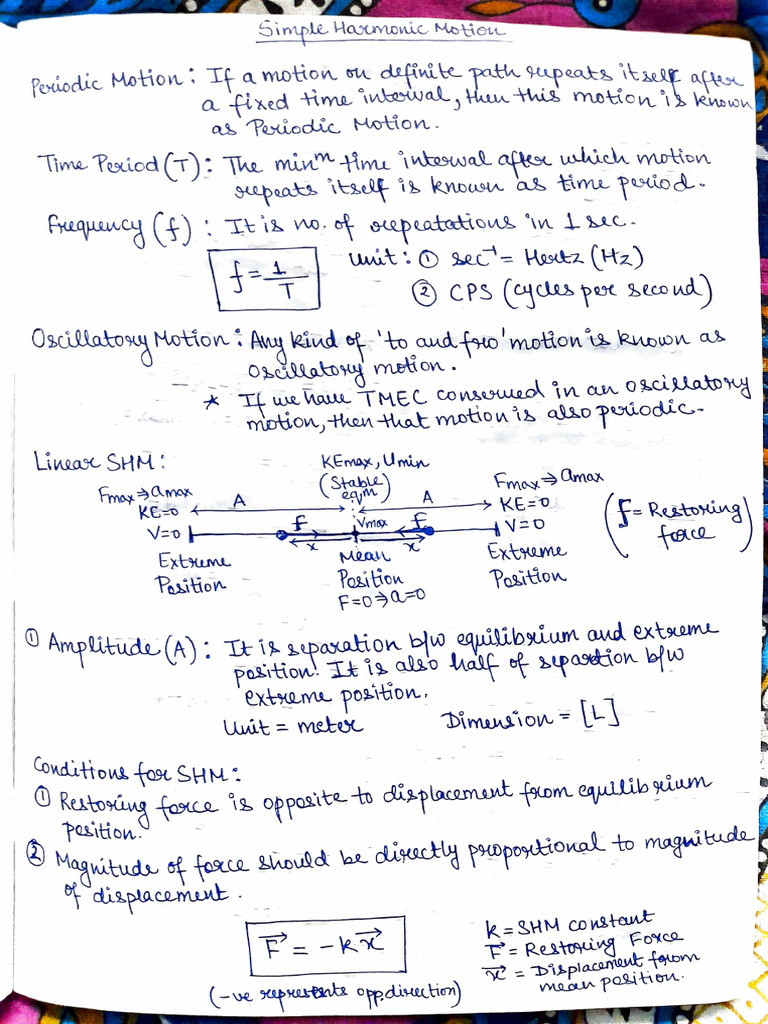 Simple Harmonic Motion
Periodic Motion: If a motion on definite path repeats itself after
a fixed time interval, then this motion is known
as Periodic Motion.
Time Period (T): The minᵐ time interval after which motion
repeats itself is known as time period.
Frequency (f): It is no. of repeatations in 1 sec.
f = 1/T
Unit: ① sec⁻¹ = Hertz (Hz)
② CPS (cycles per second)
Oscillatory Motion: Any kind of 'to and fro' motion is known as
oscillatory motion.
* If we have TMEC conserved in an oscillatory
motion, then that motion is also periodic.
Linear SHM:
KEmax, Umin
(Stable
eqᵐ)
Fmax ⇒ amax
KE=0
V=0
Extreme
Position
A
A
f
Vmax
f
x
x
Mean
Position
F=0 ⇒ a=0
Fmax ⇒ amax
KE=0
V=0
Extreme
Position
(f = Restoring
force)
① Amplitude (A): It is separation b/w equilibrium and extreme
position. It is also half of separtion b/w
extreme position.
Unit = meter Dimension = [L]
Conditions for SHM:
① Restoring force is opposite to displacement from equilibrium
position.
② Magnitude of force should be directly proportional to magnitude
of displacement.
F⃗ = -kx⃗
(-ve represents opp. direction)
k = SHM constant
F⃗ = Restoring Force
x⃗ = Displacement from
mean position.